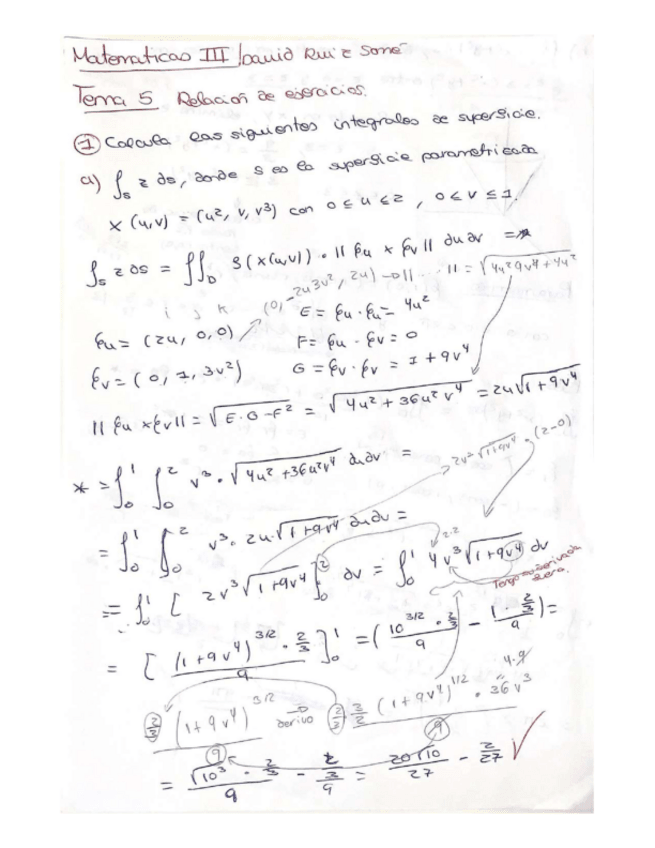 Matematicas III / David Ruiz
Tema 5 Relación de ejercicios.
① Calcula las siguientes integrales de superficie.
a) ∫_S z ds, donde S es la superficie parametrizada
X(u,v) = (u², v, v³) con 0 ≤ u ≤ 2, 0 ≤ v ≤ 1.
∫_S z ds = ∬_D f(x(u,v)) · ||ξu × ξv|| du dv = *
i j k (0, -2u3v², 2u) → ||...|| = √(4u²9v⁴+4u²)
ξu = (2u, 0, 0) E = ξu · ξu = 4u²
F = ξu · ξv = 0
ξv = (0, 1, 3v²) G = ξv · ξv = 1 + 9v⁴
||ξu × ξv|| = √(E·G-F²) = √(4u² + 36u²v⁴) = 2u√(1+9v⁴)
* = ∫₀¹ ∫₀² v³ · √(4u²+36u²v⁴) du dv = 2v³ √(1+9v⁴) · (2-0)
= ∫₀¹ ∫₀² v³ · 2u · √(1+9v⁴) du dv = 2·2
= ∫₀¹ [ 2v³ √(1+9v⁴) ]₀² dv = ∫₀¹ 4v³ √(1+9v⁴) dv
Tengo su derivada fuera.
= [ (1+9v⁴)^(3/2) · 2/3 / 9 ]₀¹ = ( 10^(3/2) · 2/3 / 9 - 1 · 2/3 / 9 ) =
4·9
2/3 (1+9v⁴)^(3/2) / 9 → derivo 2/3 · 3/2 (1+9v⁴)^(1/2) · 36v³ / 9
= √10³ · 2/3 / 9 - 2/3 / 9 = 20√10 / 27 - 2/27 ✓